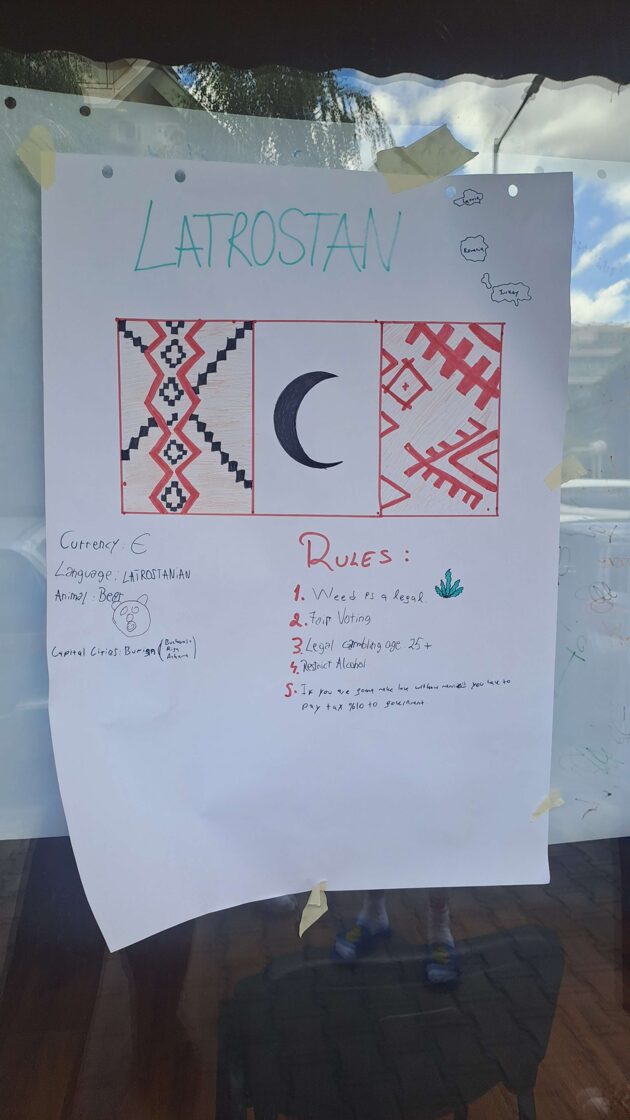 LATROSTAN
Latvia
Romania
Turkey
Currency: €
Language: LATROSTANIAN
Animal: Bear
Capital Cities: Burign (Bucharest
Riga
Ankara)
RULES:
1. Weed is a legal.
2. Fair Voting
3. Legal gambling age 25+
4. Restrict Alcohol
5. If you are gonna make love without you have to
pay tax %10 to goverment